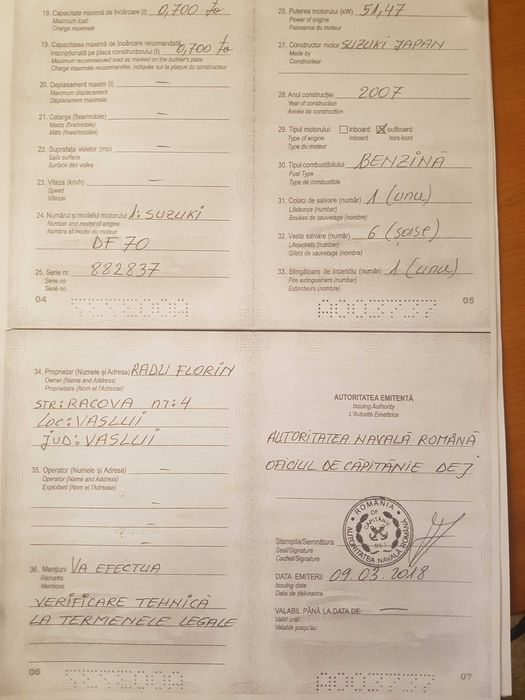 18. Capacitate maximă de încărcare (t) 0,700 to
Maximum load
Charge maximale
19. Capacitatea maximă de încărcare recomandată,
inscripționată pe placa constructorului (t) 0,700 to
Maximum recommended load as marked on the builder's plate
Charge maximale recommandée, indiquée sur la plaque du constructeur
20. Deplasament maxim (t) —
Maximum displacement
Déplacement maximale
21. Catarge (fixe/mobile) —
Masts (fixe/mobile)
Mâts (fixes/mobiles)
22. Suprafața velelor (mp) —
Sails surface
Surface des voiles
23. Viteza (km/h) —
Speed
Vitesse
24. Numărul și modelul motorului 1: SUZUKI
Number and model of engine
Nombre et model du moteur
DF 70
25. Serie nr. 882837
Serie no
Serié no:
04
26. Puterea motorului (kW) 51,47
Power of engine
Puissance du moteur
27. Constructor motor SUZUKI JAPAN
Made by
Constructeur
28. Anul construcției 2007
Year of construction
Année du construction
29. Tipul motorului: inboard outboard
Type of engine inboard hors-bord
Type du moteur
30. Tipul combustibilului BENZINĂ
Fuel Type
Type de combustible
31. Colaci de salvare (număr) 1 (unu)
Lifebuoys (number)
Bouées de sauvetage (nombre)
32. Veste salvare (număr) 6 (șase)
Lifejackets (number)
Gilets de sauvetage (nombre)
33. Stingătoare de incendiu (număr) 1 (unu)
Fire extinguishers (number)
Extincteurs (nombre)
05
34. Proprietar (Numele și Adresa) RADU FLORIN
Owner (Name and Address)
Propriétaire (Nom et l'Adresse)
STR: RACOVA nr: 4
Loc: VASLUI
Jud: VASLUI
35. Operator (Numele și Adresa) —
Operator (Name and Address)
Exploitant (Nom et l'Adresse)
36. Mențiuni VA EFECTUA
Remarks
Mentions
VERIFICARE TEHNICĂ
LA TERMENELE LEGALE
06
AUTORITATEA EMITENTĂ
Issuing Authority
L'Autorité Emettrice
AUTORITATEA NAVALĂ ROMÂNĂ
OFICIUL DE CĂPITĂNIE DEJ
ROMÂNIA
AUTORITATEA NAVALĂ ROMÂNĂ
Ștampila/Semnătura
Seal/Signature
Cachet/Signature
DATA EMITERII 09.03.2018
Issuing date
Date de délivrance
VALABIL PÂNĂ LA DATA DE: —
Valid until
Valable jusqu'au
07